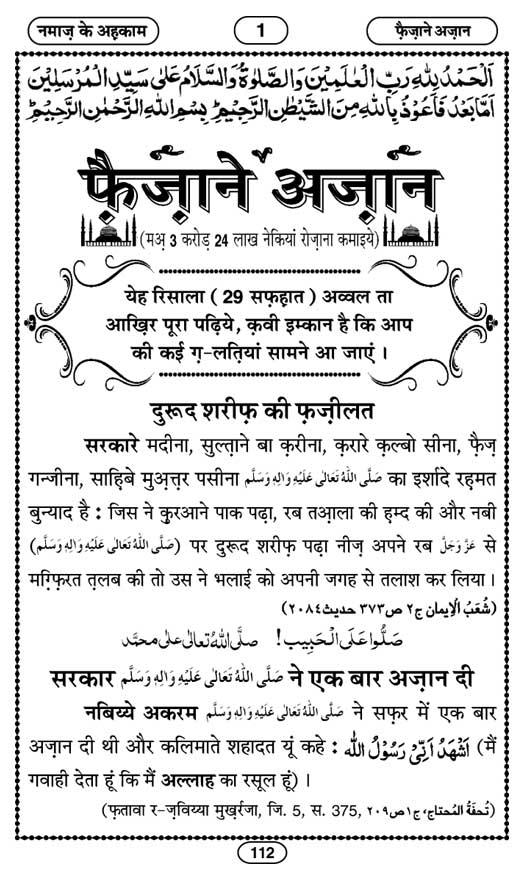 नमाज़ के अहकाम
1
फ़ैज़ाने अज़ान
اَلْحَمْدُ لِلّٰهِ رَبِّ الْعٰلَمِيْنَ وَالصَّلٰوةُ وَالسَّلَامُ عَلٰى سَيِّدِ الْمُرْسَلِيْنَ
اَمَّا بَعْدُ فَاَعُوْذُ بِاللّٰهِ مِنَ الشَّيْطٰنِ الرَّجِيْمِ ؕ بِسْمِ اللّٰهِ الرَّحْمٰنِ الرَّحِيْمِ ؕ
फ़ैज़ाने अज़ान
(मअ़ 3 करोड़ 24 लाख नेकियां रोज़ाना कमाइये)
येह रिसाला ( 29 सफ़्हात ) अव्वल ता
आख़िर पूरा पढ़िये, क़वी इम्कान है कि आप
की कई ग़-लत़ियां सामने आ जाएं ।
दुरूद शरीफ़ की फ़ज़ीलत
सरकारे मदीना, सुल्त़ाने बा क़रीना, क़रारे क़ल्बो सीना, फ़ैज़
गन्जीना, साह़िबे मुअ़त़्त़र पसीना صَلَّى اللهُ تَعَالٰى عَلَيْهِ وَاٰلِهٖ وَسَلَّم का इर्शादे रह़मत
बुन्याद है : जिस ने क़ुरआने पाक पढ़ा, रब तआ़ला की ह़म्द की और नबी
(صَلَّى اللهُ تَعَالٰى عَلَيْهِ وَاٰلِهٖ وَسَلَّم) पर दुरूद शरीफ़ पढ़ा नीज़ अपने रब عَزَّ وَجَلَّ से
मग़्फ़िरत त़लब की तो उस ने भलाई को अपनी जगह से तलाश कर लिया ।
(شُعَبُ الْاِيمان ج٢ ص٣٧٣ حديث٢٠٨٤)
صَلُّوا عَلَى الْحَبِيب ! صلَّى اللهُ تعالٰى علٰى محمَّد
सरकार صَلَّى اللهُ تَعَالٰى عَلَيْهِ وَاٰلِهٖ وَسَلَّم ने एक बार अज़ान दी
नबिय्ये अकरम صَلَّى اللهُ تَعَالٰى عَلَيْهِ وَاٰلِهٖ وَسَلَّم ने सफ़र में एक बार
अज़ान दी थी और कलिमाते शहादत यूं कहे : اَشْهَدُ اَنِّيْ رَسُوْلُ اللّٰه (मैं
गवाही देता हूं कि मैं अल्लाह का रसूल हूं) ।
(फ़तावा र-ज़विय्या मुख़र्रजा, जि. 5, स. 375, تُحفَةُ المُحتاج، ج١ ص٢٠٩)
112